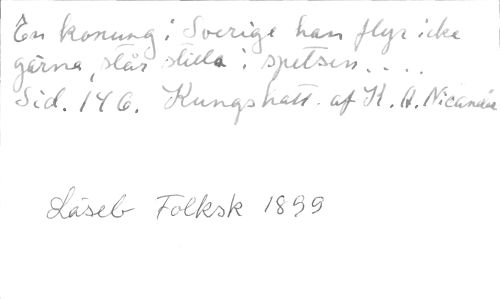 En konung i Sverige han flyr icke
gärna, står stilla i spetsen....
Sid. 146. Kungshatt. af K. A. Nicander
Läseb Folksk 1899